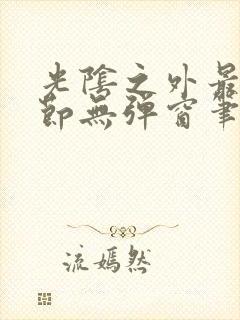 光陰之外最
節無彈窗筆
流嫣然